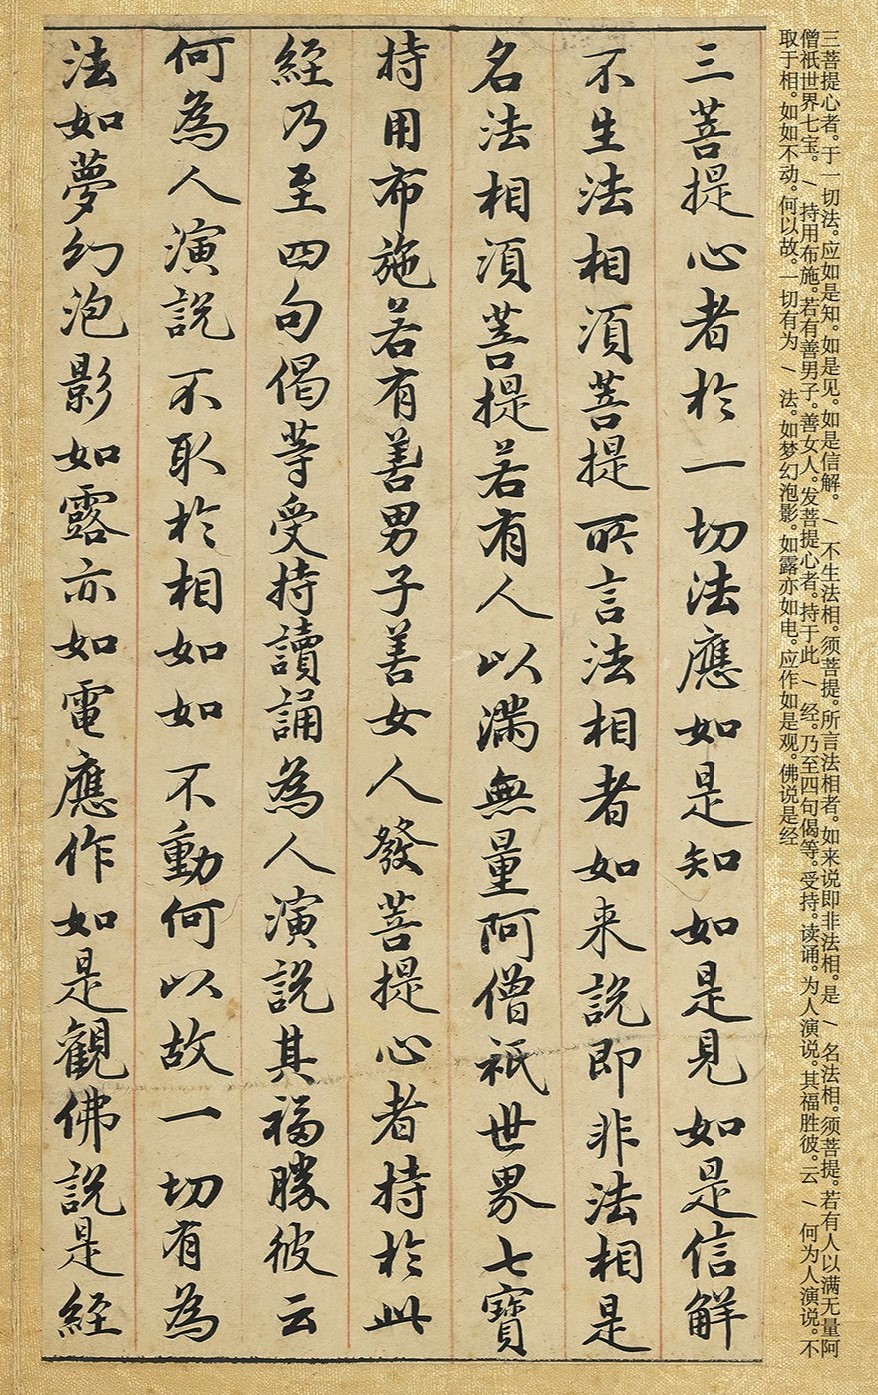 三菩提心者。于一切法。应如是知。如是见。如是信解。/ 不生法相。须菩提。所言法相者。如来说即非法相。是 / 名法相。须菩提。若有人以满无量阿
僧祇世界七宝。/ 持用布施。若有善男子。善女人。发菩提心者。持于此 / 经。乃至四句偈等。受持。读诵。为人演说。其福胜彼。云 / 何为人演说。不
取于相。如如不动。何以故。一切有为 / 法。如梦幻泡影。如露亦如电。应作如是观。佛说是经
三菩提心者於一切法應如是知如是見如是信解
不生法相須菩提所言法相者如来說即非法相是
名法相須菩提若有人以滿無量阿僧祇世界七寶
持用布施若有善男子善女人發菩提心者持於此
經乃至四句偈等受持讀誦為人演說其福勝彼云
何為人演說不取於相如如不動何以故一切有為
法如夢幻泡影如露亦如電應作如是觀佛說是經